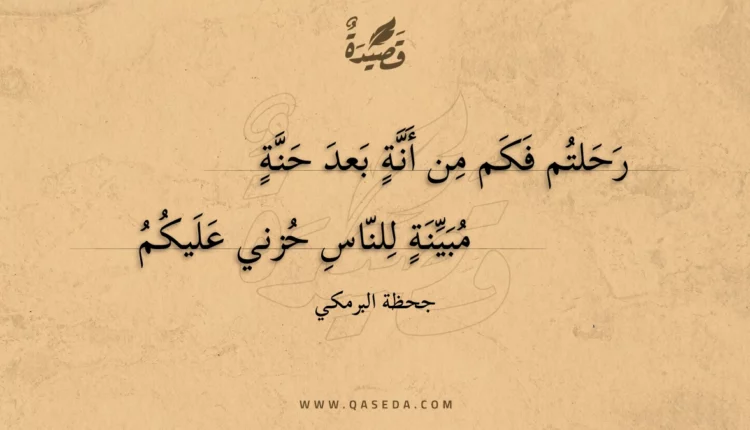 قَصِيدَةٌ
رَحَلتُم فَكَم مِن أَنَّةٍ بَعدَ حَنَّةٍ
مُبَيِّنَةٍ لِلنّاسِ حُزني عَلَيكُمُ
جحظة البرمكي
WWW.QASEDA.COM